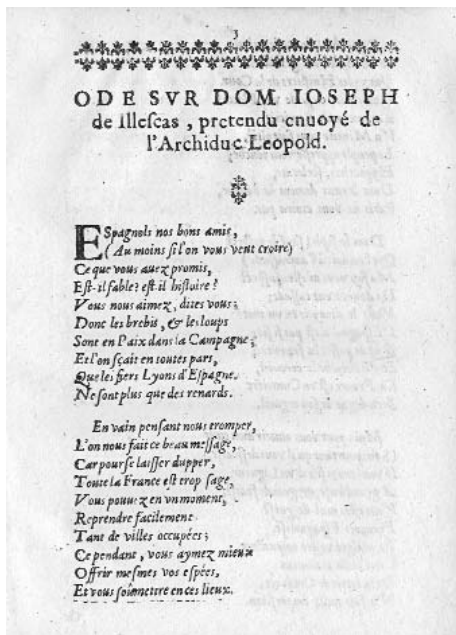 3
ODE SVR DOM IOSEPH
de Illeſcas, pretendu enuoyé de
l'Archiduc Leopold.
ESpagnols nos bons amis,
(Au moins ſi l'on vous veut croire)
Ce que vous auez promis,
Eſt-il fable? eſt-il hiſtoire?
Vous nous aimez, dites vous;
Donc les brebis, & les loups
Sont en Paix dans la Campagne;
Et l'on ſçait en toutes pars,
Que les fiers Lyons d'Eſpagne.
Ne ſont plus que des renards.
En vain penſant nous tromper,
L'on nous fait ce beau meſſage,
Car pour ſe laiſſer dupper,
Toute la France eſt trop ſage,
Vous pouuez en vn moment,
Reprendre facilement
Tant de villes occupées;
Cependant, vous aymez mieux
Offrir meſmes vos eſpées,
Et vous ſoûmettre en ces lieux.